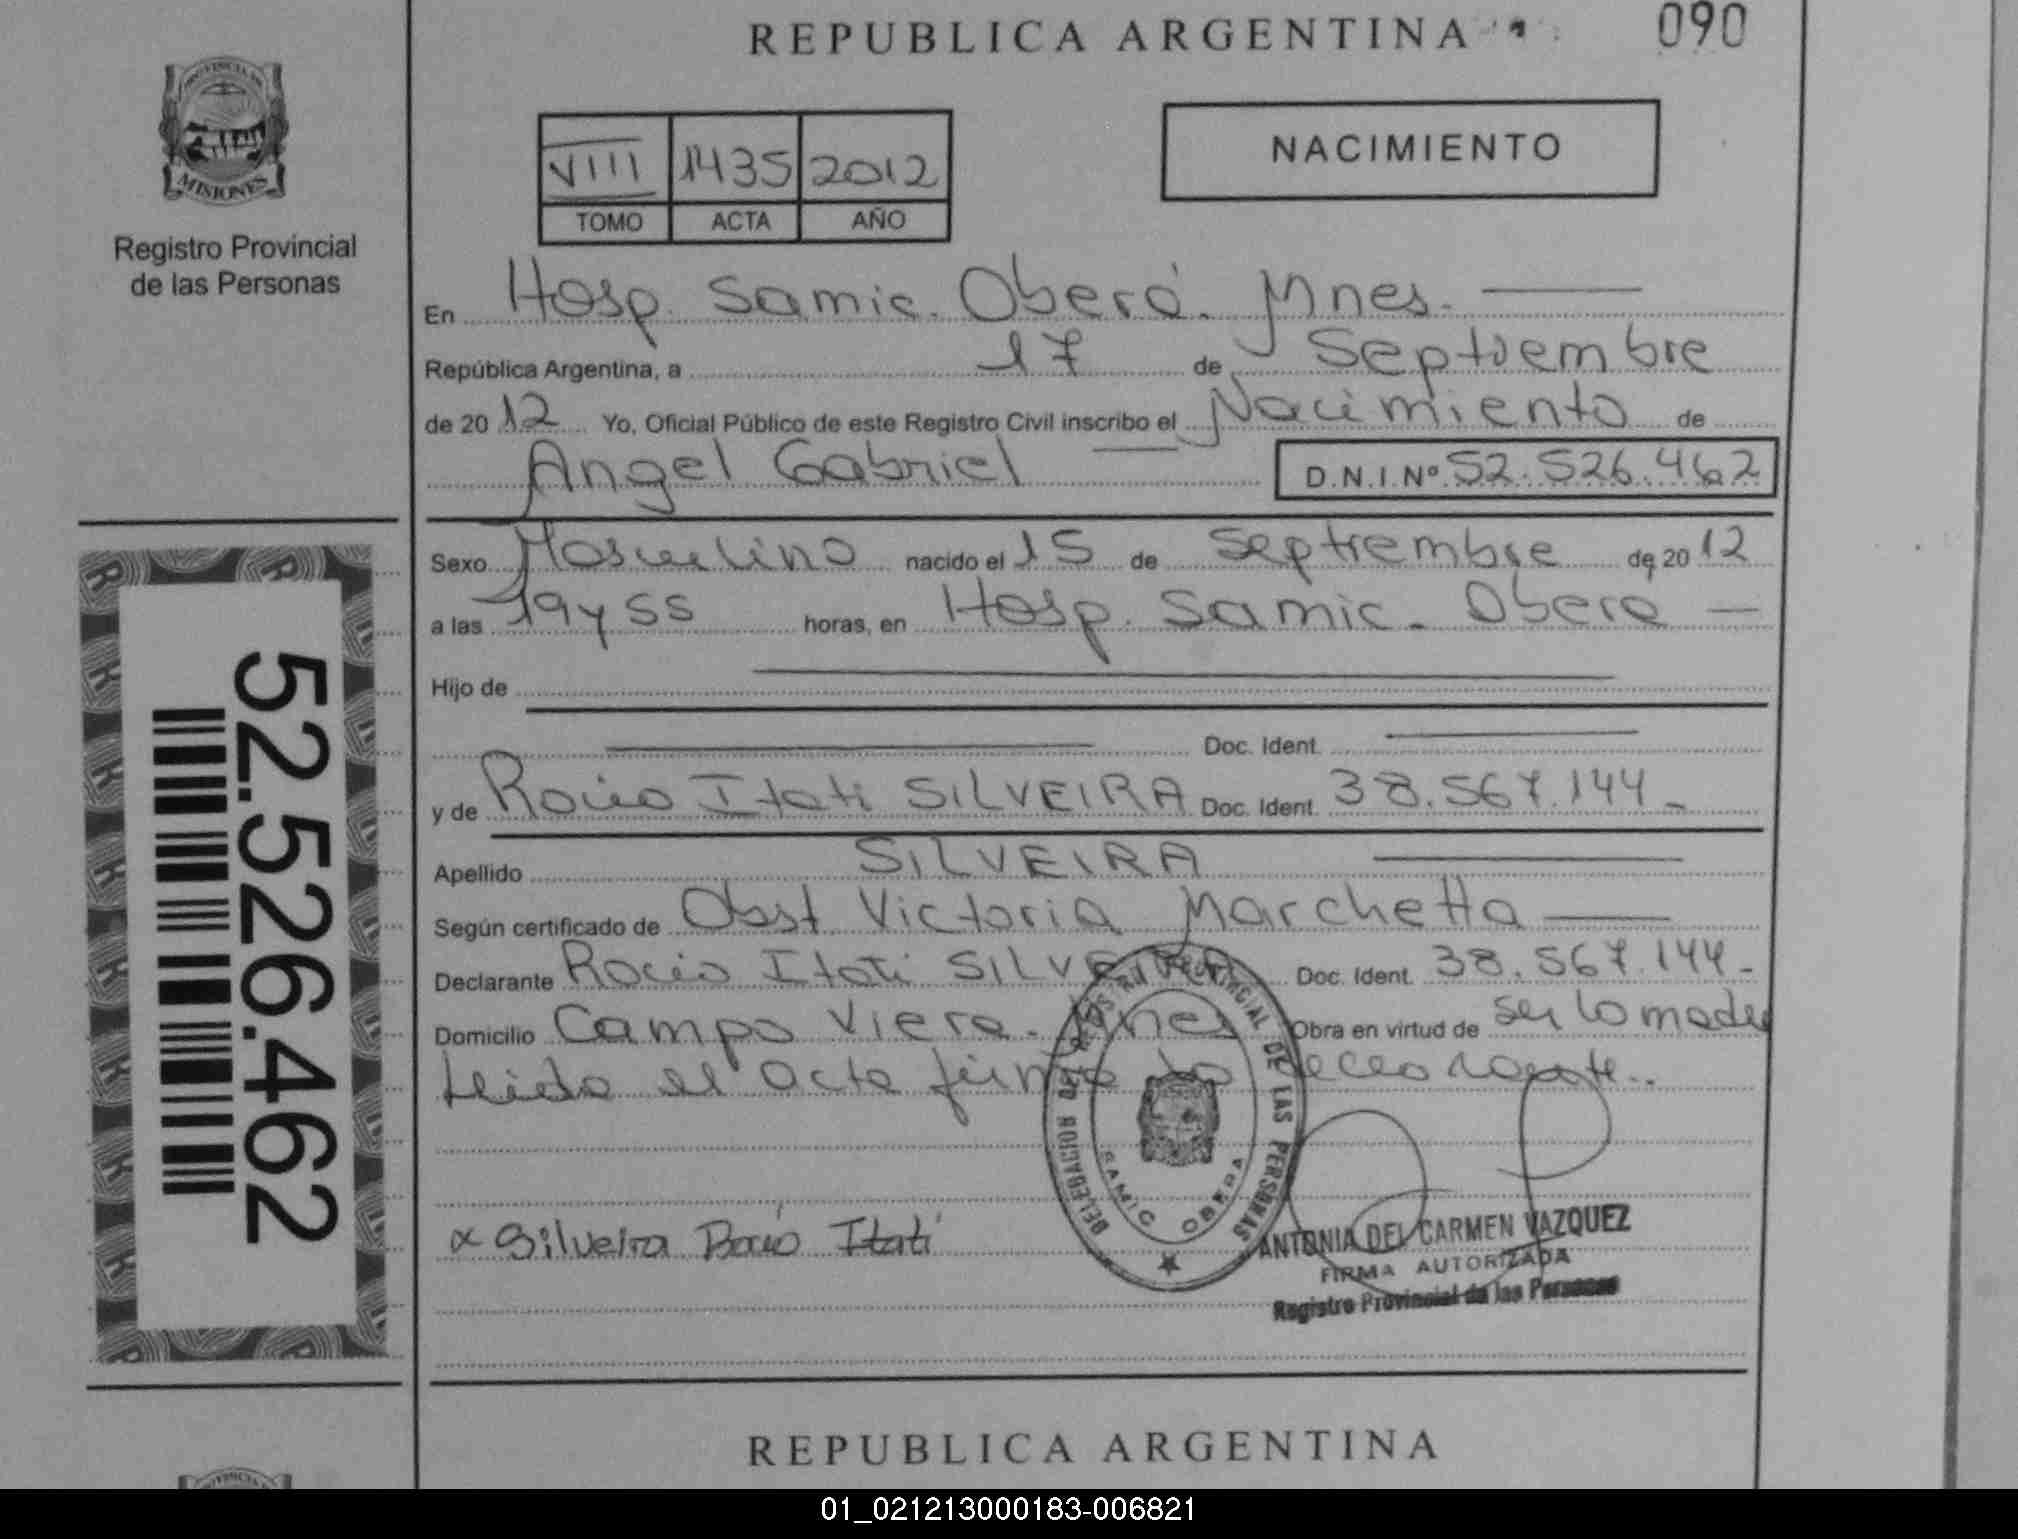 REPUBLICA ARGENTINA
090
PROVINCIA DE
MISIONES
Registro Provincial
de las Personas
VIII 1435 2012
TOMO ACTA AÑO
NACIMIENTO
En Hosp. Samic. Oberá. Mnes.
República Argentina, a 17 de Septiembre
de 2012 Yo, Oficial Público de este Registro Civil inscribo el Nacimiento de
Angel Gabriel D.N.I.Nº 52.526.462
Sexo Masculino nacido el 15 de Septiembre de 2012
a las 19 y 55 horas, en Hosp. Samic. Obera
Hijo de
Doc. Ident.
y de Rocio Itati SILVEIRA Doc. Ident. 38.567.144
Apellido SILVEIRA
Según certificado de Obst Victoria Marchetta
Declarante Rocio Itati SILVEIRA Doc. Ident. 38.567.144
Domicilio Campo Viera. Mnes Obra en virtud de ser la madre
Leida el acta firma la declarante.
DELEGACION DEL REGISTRO PROVINCIAL DE LAS PERSONAS
SAMIC OBERA
x Silveira Rocio Itati
ANTONIA DEL CARMEN VAZQUEZ
FIRMA AUTORIZADA
Registro Provincial de las Personas
52.526.462
REPUBLICA ARGENTINA
01_021213000183-006821